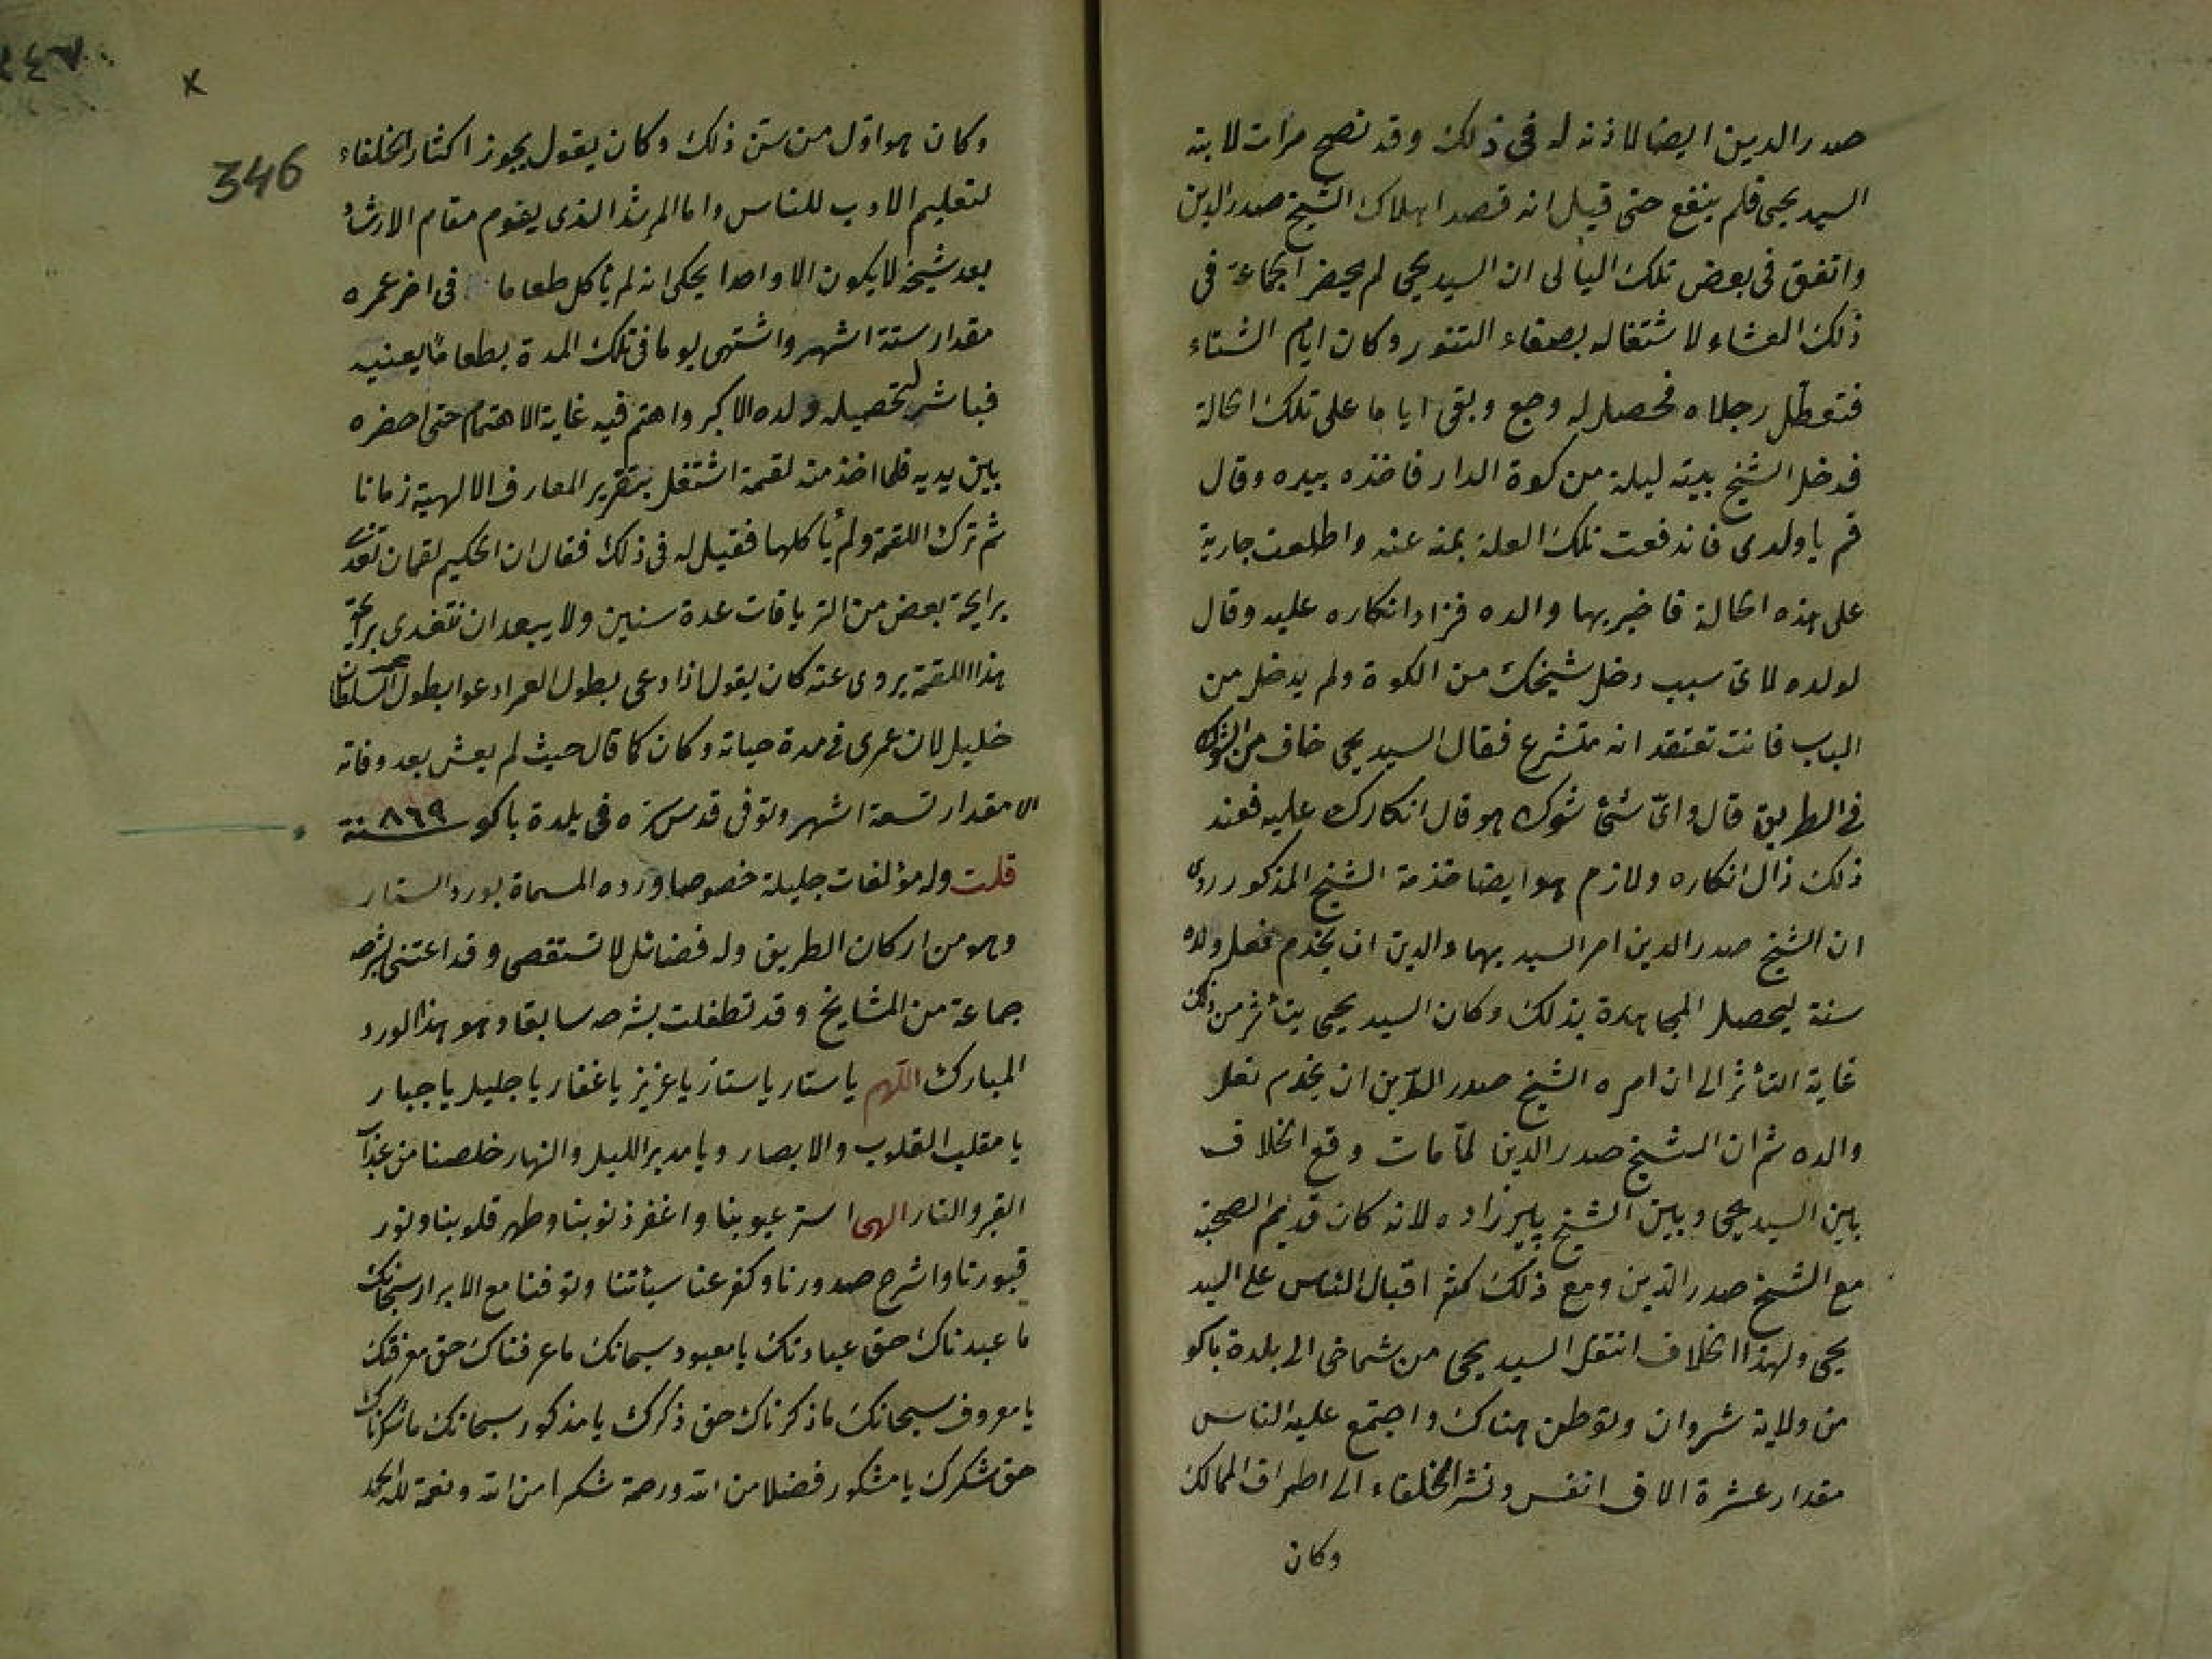 صدر الدين ايضا لاذنه له فى ذلك وقد نصح مرات لابنه
السيد يحيى فلم ينفع حتى قيل انه قصد اهلاك الشيخ صدر الدين
واتفق فى بعض تلك اليالى ان السيد يحيى لم يحضر الجماعة فى
ذلك العشاء لاشتغاله بصفاء التنور وكان ايام الشتاء
فتعطل رجلاه فحصل له وجع وبقى اياما على تلك الحالة
فدخل الشيخ بيته ليلة من كوة الدار فاخذه بيده وقال
قم يا ولدى فاندفعت تلك العلة بمنه عنه واطلعت جارية
على هذه الحالة فاخبر بها والده فزاد انكاره عليه وقال
لولده لاىّ سبب دخل شيخك من الكوة ولم يدخل من
الباب فانت تعتقد انه متشرع فقال السيد يحيى خاف من الشوك
فى الطريق قال واىّ شئ شوك هو قال انكارك عليه فعند
ذلك زال انكاره ولازم هو ايضا خدمة الشيخ المذكور روى
ان الشيخ صدر الدين امر السيد بهاء والدين ان يخدم نعل ولده
سنة ليحصل المجاهدة بذلك وكان السيد يحيى يتأثر من ذلك
غاية التأثر الى ان امره الشيخ صدر الدّين ان يخدم نعل
والده ثم ان الشيخ صدر الدين لمّا مات وقع الخلاف
بين السيد يحيى وبين الشيخ پيرزاده لانه كان قديم الصحبة
مع الشيخ صدر الدين ومع ذلك كثر اقبال الناس على السيد
يحيى ولهذا الخلاف انتقل السيد يحيى من شماخى الى بلدة باكو
من ولاية شروان وتوطن هناك واجتمع عليه الناس
مقدار عشرة الاف انفس ونشر الخلفاء الى اطراف الممالك
وكان
346
وكان هو اول من سنّ ذلك وكان يقول يجوز اكثار الخلفاء
لتعليم الادب للناس واما المرشد الذى يقوم مقام الارشاد
بعد شيخه لا يكون الا واحدا يحكى انه لم يأكل طعاما فى اخر عمره
مقدار ستة اشهر واشتهى يوما فى تلك المدة بطعام يعنيه
فباشر لتحصيله ولده الاكبر واهتم فيه غاية الاهتمام حتى احضره
بين يديه فلما اخذ منه لقمة اشتغل بتقرير المعارف الالهية زمانا
ثم ترك اللقمة ولم يأكلها فقيل له فى ذلك فقال ان الحكيم لقمان تغدى
برايحة بعض من الترياقات عدة سنين ولا يبعد ان نتغدى برايحة
هذا اللقمة يروى عنه كان يقول اذا دعى بطول العمر ادعوا بطول عمر السلطان
خليل لان عمرى فى مدة حياته وكان كما قال حيث لم يعش بعد وفاته
الا مقدار تسعة اشهر وتوفى قدس سره فى بلدة باكو سنة ٨٦٩
قلت وله مؤلفات جليلة خصوصا ورده المسماة بورد الستار
وهو من اركان الطريق وله فضائل لا تستقصى وقد اعتنى بشرحه
جماعة من المشايخ وقد تطفلت بشرحه سابقا وهو هذا الورد
المبارك اللّهم يا ستار يا ستار يا عزيز يا غفار يا جليل يا جبار
يا مقلب القلوب والابصار ويا مدبر الليل والنهار خلصنا من عذاب
القبر والنار الهى استر عيوبنا واغفر ذنوبنا وطهر قلوبنا ونور
قبورنا واشرح صدورنا وكفر عنا سيأتنا وتوفنا مع الابرار سبحانك
ما عبدناك حق عبادتك يا معبود سبحانك ما عرفناك حق معرفتك
يا معروف سبحانك ما ذكرناك حق ذكرك يا مذكور سبحانك ما شكرناك
حق شكرك يا مشكور فضلا من الله ورحمة شكرا من الله ونعمة لله الحمد